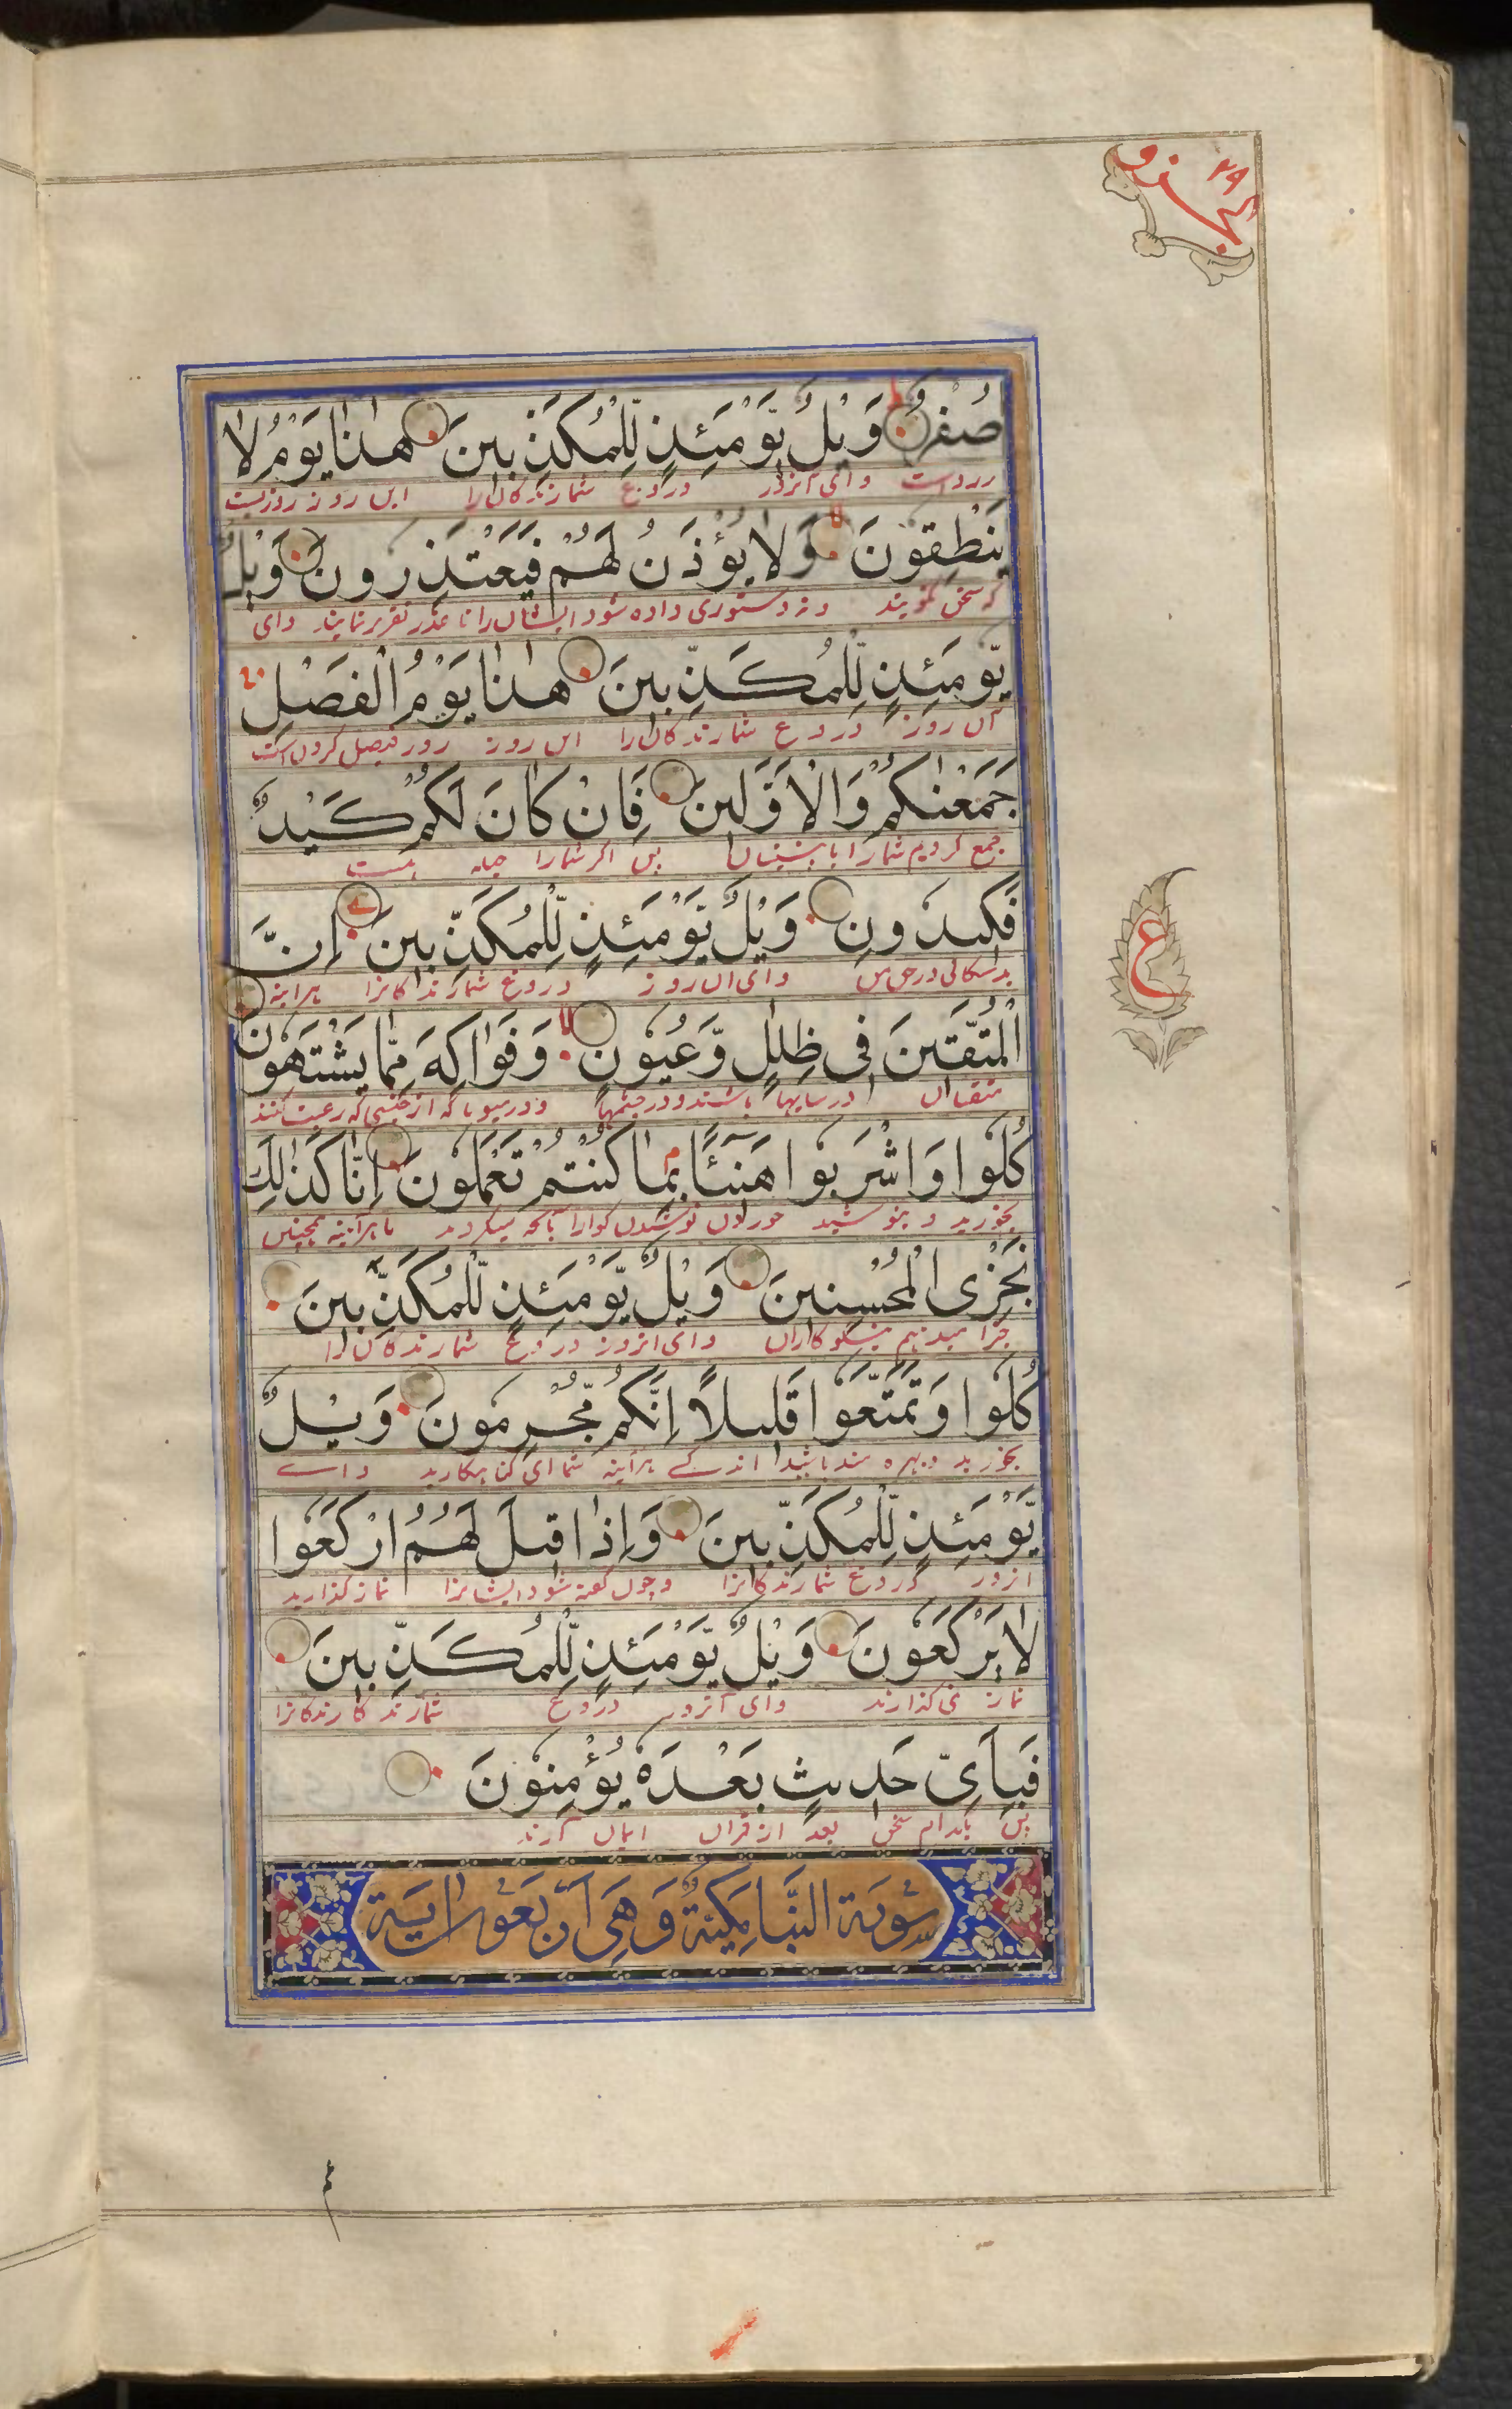 ٢٩
الجزو
صُفْرٌ وَيْلٌ يَّوْمَئِذٍ لِّلْمُكَذِّبِينَ هٰذَا يَوْمُ لَا
زرد است وای آنروز دروغ شمارندگان را این روز روزیست
يَنْطِقُونَ وَلَا يُؤْذَنُ لَهُمْ فَيَعْتَذِرُونَ وَيْلٌ
که سخن نگویند و نه دستوری داده شود ایشان را تا عذر تقریر نمایند وای
يَّوْمَئِذٍ لِّلْمُكَذِّبِينَ هٰذَا يَوْمُ الْفَصْلِ
آن روز دروغ شمارندگان را این روز روز فیصل کردن است
جَمَعْنٰكُمْ وَالْاَوَّلِينَ فَاِنْ كَانَ لَكُمْ كَيْدٌ
جمع کردیم شما را با پیشینیان پس اگر شما را حیله هست
فَكِيدُونِ وَيْلٌ يَّوْمَئِذٍ لِّلْمُكَذِّبِينَ اِنَّ
بدسگالی در حق من وای آن روز دروغ شمارندگانرا هرآینه
ع
الْمُتَّقِينَ فِى ظِلٰلٍ وَّعُيُونٍ وَفَوَاكِهَ مِمَّا يَشْتَهُونَ
متقیان در سایها باشند و در چشمها و در میوها که از جنسی که رغبت کنند
كُلُوا وَاشْرَبُوا هَنِيٓئًا بِمَا كُنْتُمْ تَعْمَلُونَ اِنَّا كَذٰلِكَ
بخورید و بنوشید خوردن نوشیدن گوارا بآنچه میکردید ما هرآینه همچنین
نَجْزِى الْمُحْسِنِينَ وَيْلٌ يَّوْمَئِذٍ لِّلْمُكَذِّبِينَ
جزا میدهیم نیکوکاران وای آنروز دروغ شمارندگان را
كُلُوا وَتَمَتَّعُوا قَلِيلًا اِنَّكُمْ مُّجْرِمُونَ وَيْلٌ
بخورید و بهره مند باشید اندکے هرآینه شما گناهکارید واے
يَّوْمَئِذٍ لِّلْمُكَذِّبِينَ وَاِذَا قِيلَ لَهُمُ ارْكَعُوا
آنروز دروغ شمارندگانرا و چون گفته شود ایشانرا نماز گذارید
لَا يَرْكَعُونَ وَيْلٌ يَّوْمَئِذٍ لِّلْمُكَذِّبِينَ
نماز نمی گذارند وای آنروز دروغ شمارند گارندگانرا
فَبِاَىِّ حَدِيثٍ بَعْدَهٗ يُؤْمِنُونَ
پس بکدام سخن بعد از قرآن ایمان آرند
سُورَة النَّبَا مَكِيَّةٌ وَهِىَ اَرْبَعُونَ اٰيَة
عم